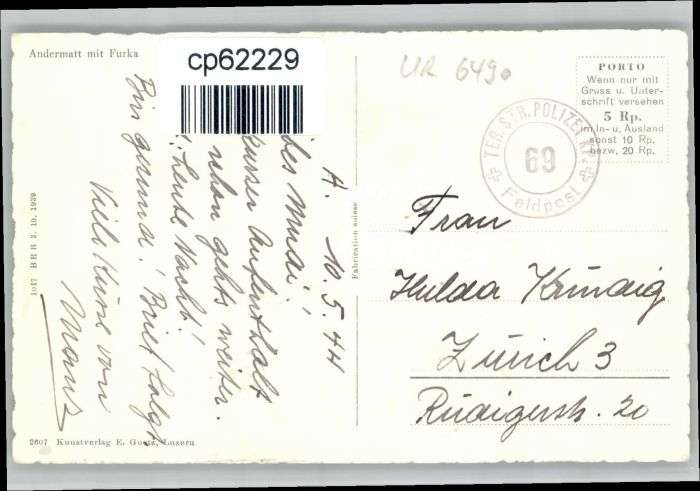 Andermatt mit Furka
cp62229
UR 649.
PORTO
Wenn nur mit
Gruss u. Unter-
schrift versehen
5 Rp.
im In- u. Ausland
sonst 10 Rp.
bezw. 20 Rp.
TER. STR. POLIZEI KP.
69
Feldpost
A. 10.5.44
des Mudi!
kurzer Aufenthalt
schon gehts weiter.
heute Nacht!
Bin gesund! Brief folgt
Viele Küsse von
Mans
Frau
Hulda Kündig
Zürich 3
Rüdigerstr. 20
Fabrication suisse
1017 BRB 3. 10. 1939
2607 Kunstverlag E. Goetz, Luzern